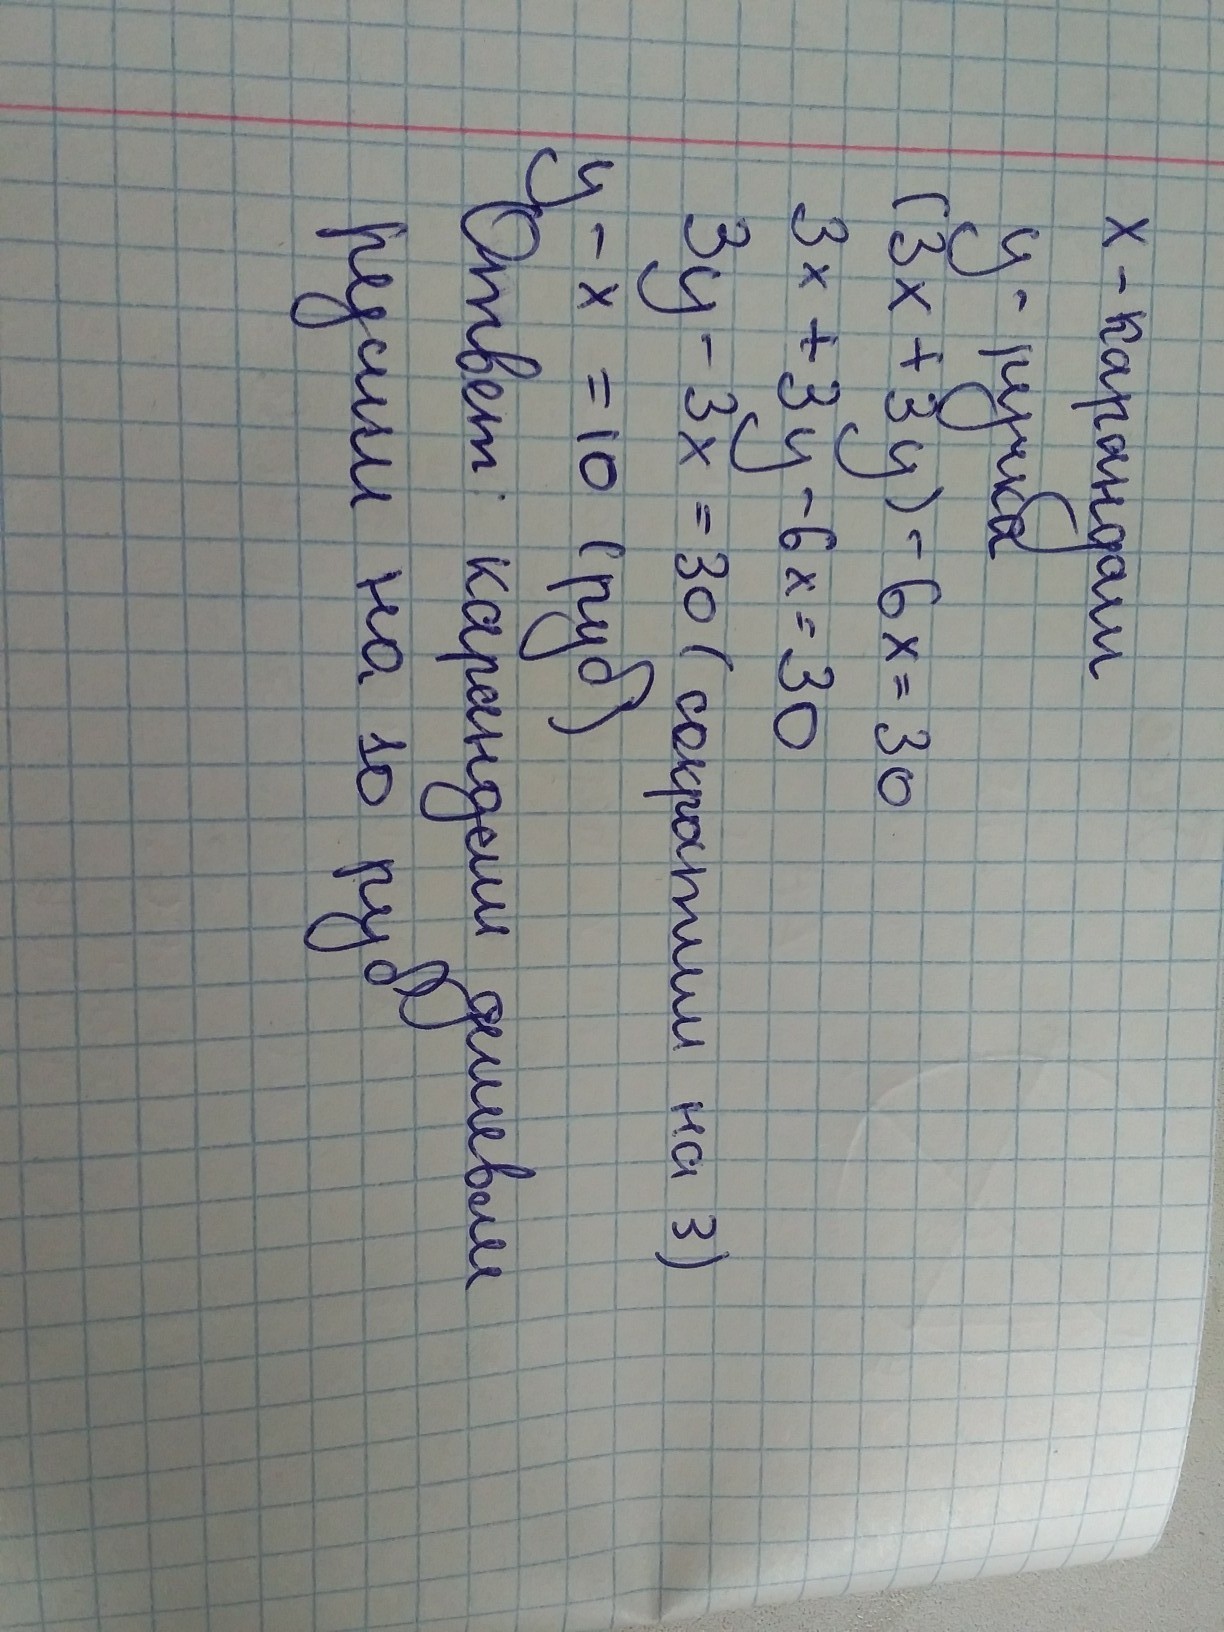 x - карандаш
y - ручка
(3x + 3y) - 6x = 30
3x + 3y - 6x = 30
3y - 3x = 30 (сократим на 3)
y - x = 10 (руб)
Ответ: карандаш дишевом
редили на 10 руб